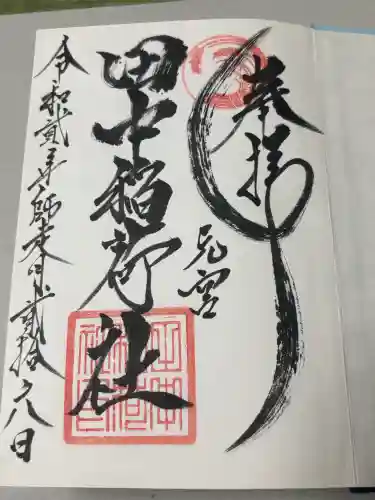 奉拝
元宮
田中稲荷社
令和貳年師走月貳拾八日